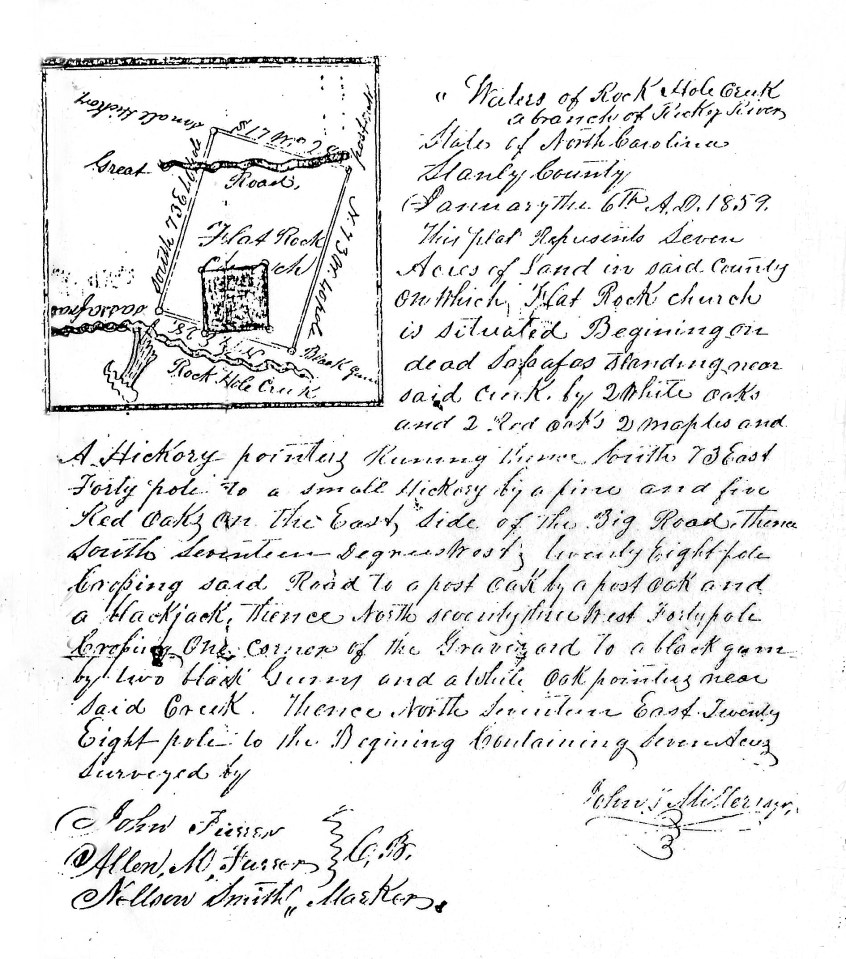 Small Hickory
S 17 W 28
Post oak
Great
Road,
South 73 E 40 pole
N. 73 W. 40 pole
Flat Rock
Church
Sassafras
N 17 E 28
Black gum
Rock Hole Creek
" Waters of Rock Hole Creek
a branch of Rocky River
State of North Carolina
Stanly County
January the 6th A.D. 1859.
This plat Repusents Seven
Acres of Land in said County
On which, Flat Rock church
is situated Begining on
dead Sassafas standing near
said creek. by 2 White oaks
and 2 Red oaks 2 maples and
A Hickory pointers Runing thence South 73 East
Forty pole to a small Hickory by a pine and five
Red Oaks on the East, Side of the Big Road, thence
South Seventeen Degrees West; twenty Eight pole
Crossing said Road to a post oak by a post oak and
a blackjack, thence North seventy three West Forty pole
Crossing One corner of the Graveyard to a black gum
by two black Gums and a White Oak pointers near
said Creek. Thence North Seventeen East Twenty
Eight pole to the Begining Containing Seven Acres
Surveyed by
John Miller
John Furrer
Allen, M, Furrer } C. B.
Nellson Smith " Marker